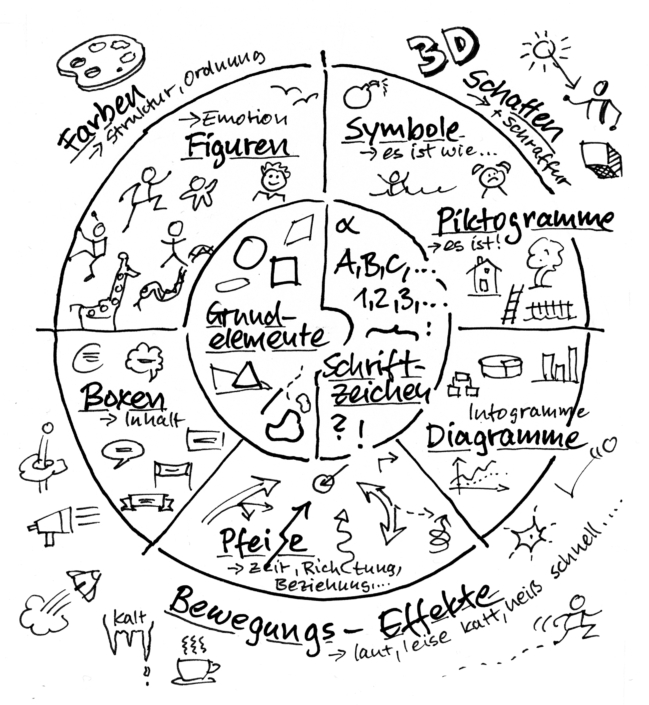 Farben
→ Struktur, Ordnung
3D
Schatten
→ + Schraffur
→ Emotion
Figuren
Symbole
→ es ist wie...
Piktogramme
→ es ist!
α
A, B, C, ...
1, 2, 3, ...
Grund-
elemente
Schrift-
zeichen
? !
€
Boxen
→ Inhalt
Infogramme
Diagramme
Pfeile
→ Zeit, Richtung,
Beziehung...
Bewegungs - Effekte
→ laut, leise kalt, heiß schnell....
kalt